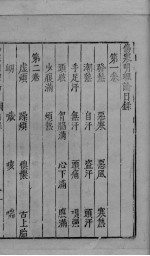 傷寒明理論目錄
第一卷
發熱 惡寒 惡風 寒熱
潮熱 自汗 盜汗 頭汗
手足汗 無汗 頭痛 項強
頭眩 胸脇滿 心下滿 腹滿
少腹滿 煩熱
第二卷
虛煩 懊憹 舌上胎
喘